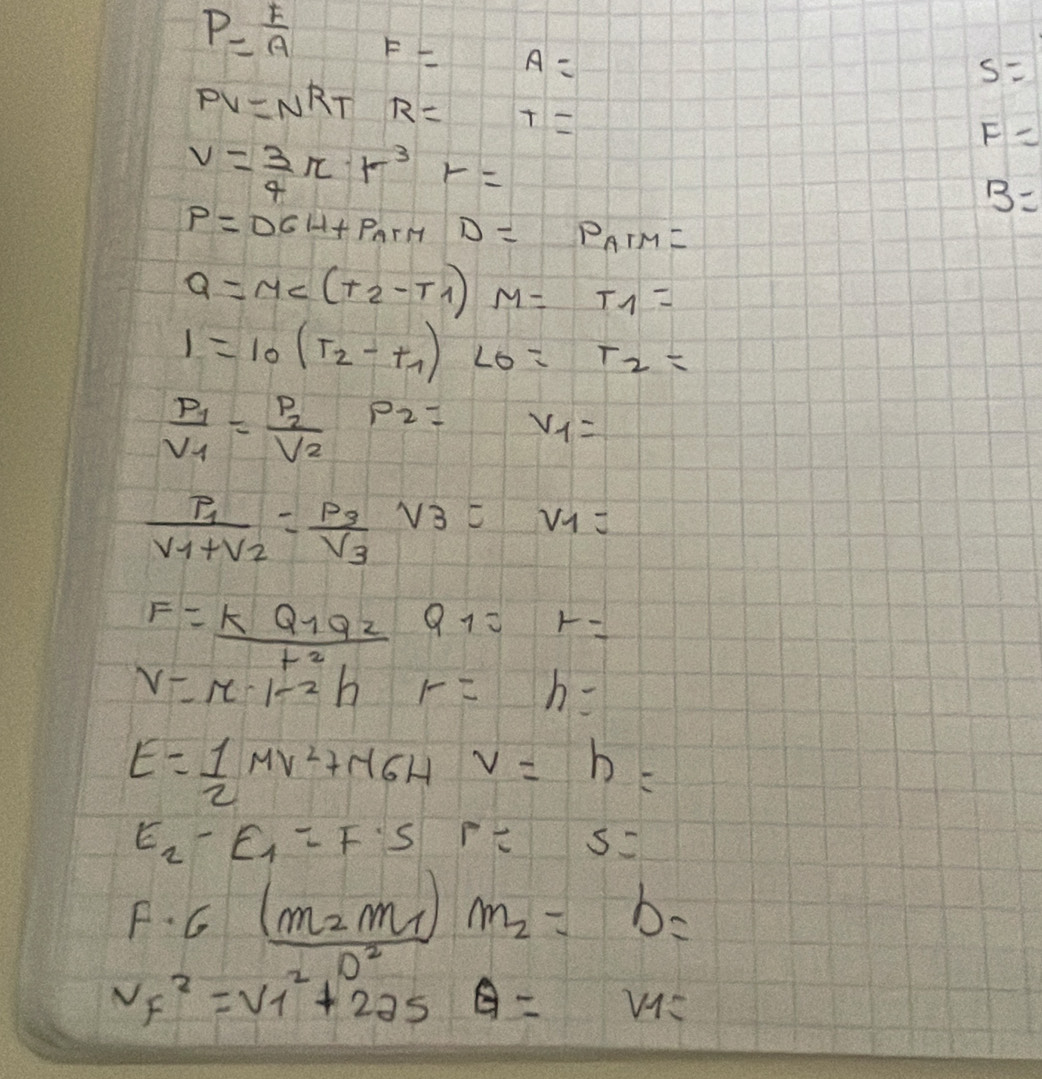 P = F/A F = A = S =
PV = NRT R = T = F =
V = 3/4 π · r³ r = B =
P = DGH + PATM D = PATM =
Q = Mc (T2 - T1) M = T1 =
l = lo (T2 - t1) Lo = T2 =
P1/V1 = P2/V2 P2 = V1 =
P1/(V1 + V2) = P3/V3 V3 = V1 =
F = K Q1Q2/r² Q1 = r =
V = π · r² h r = h =
E = 1/2 MV² + MGH V = h =
E2 - E1 = F · S F = S =
F · G (m2 m1)/D² m2 = D =
VF² = V1² + 2as a = V1 =